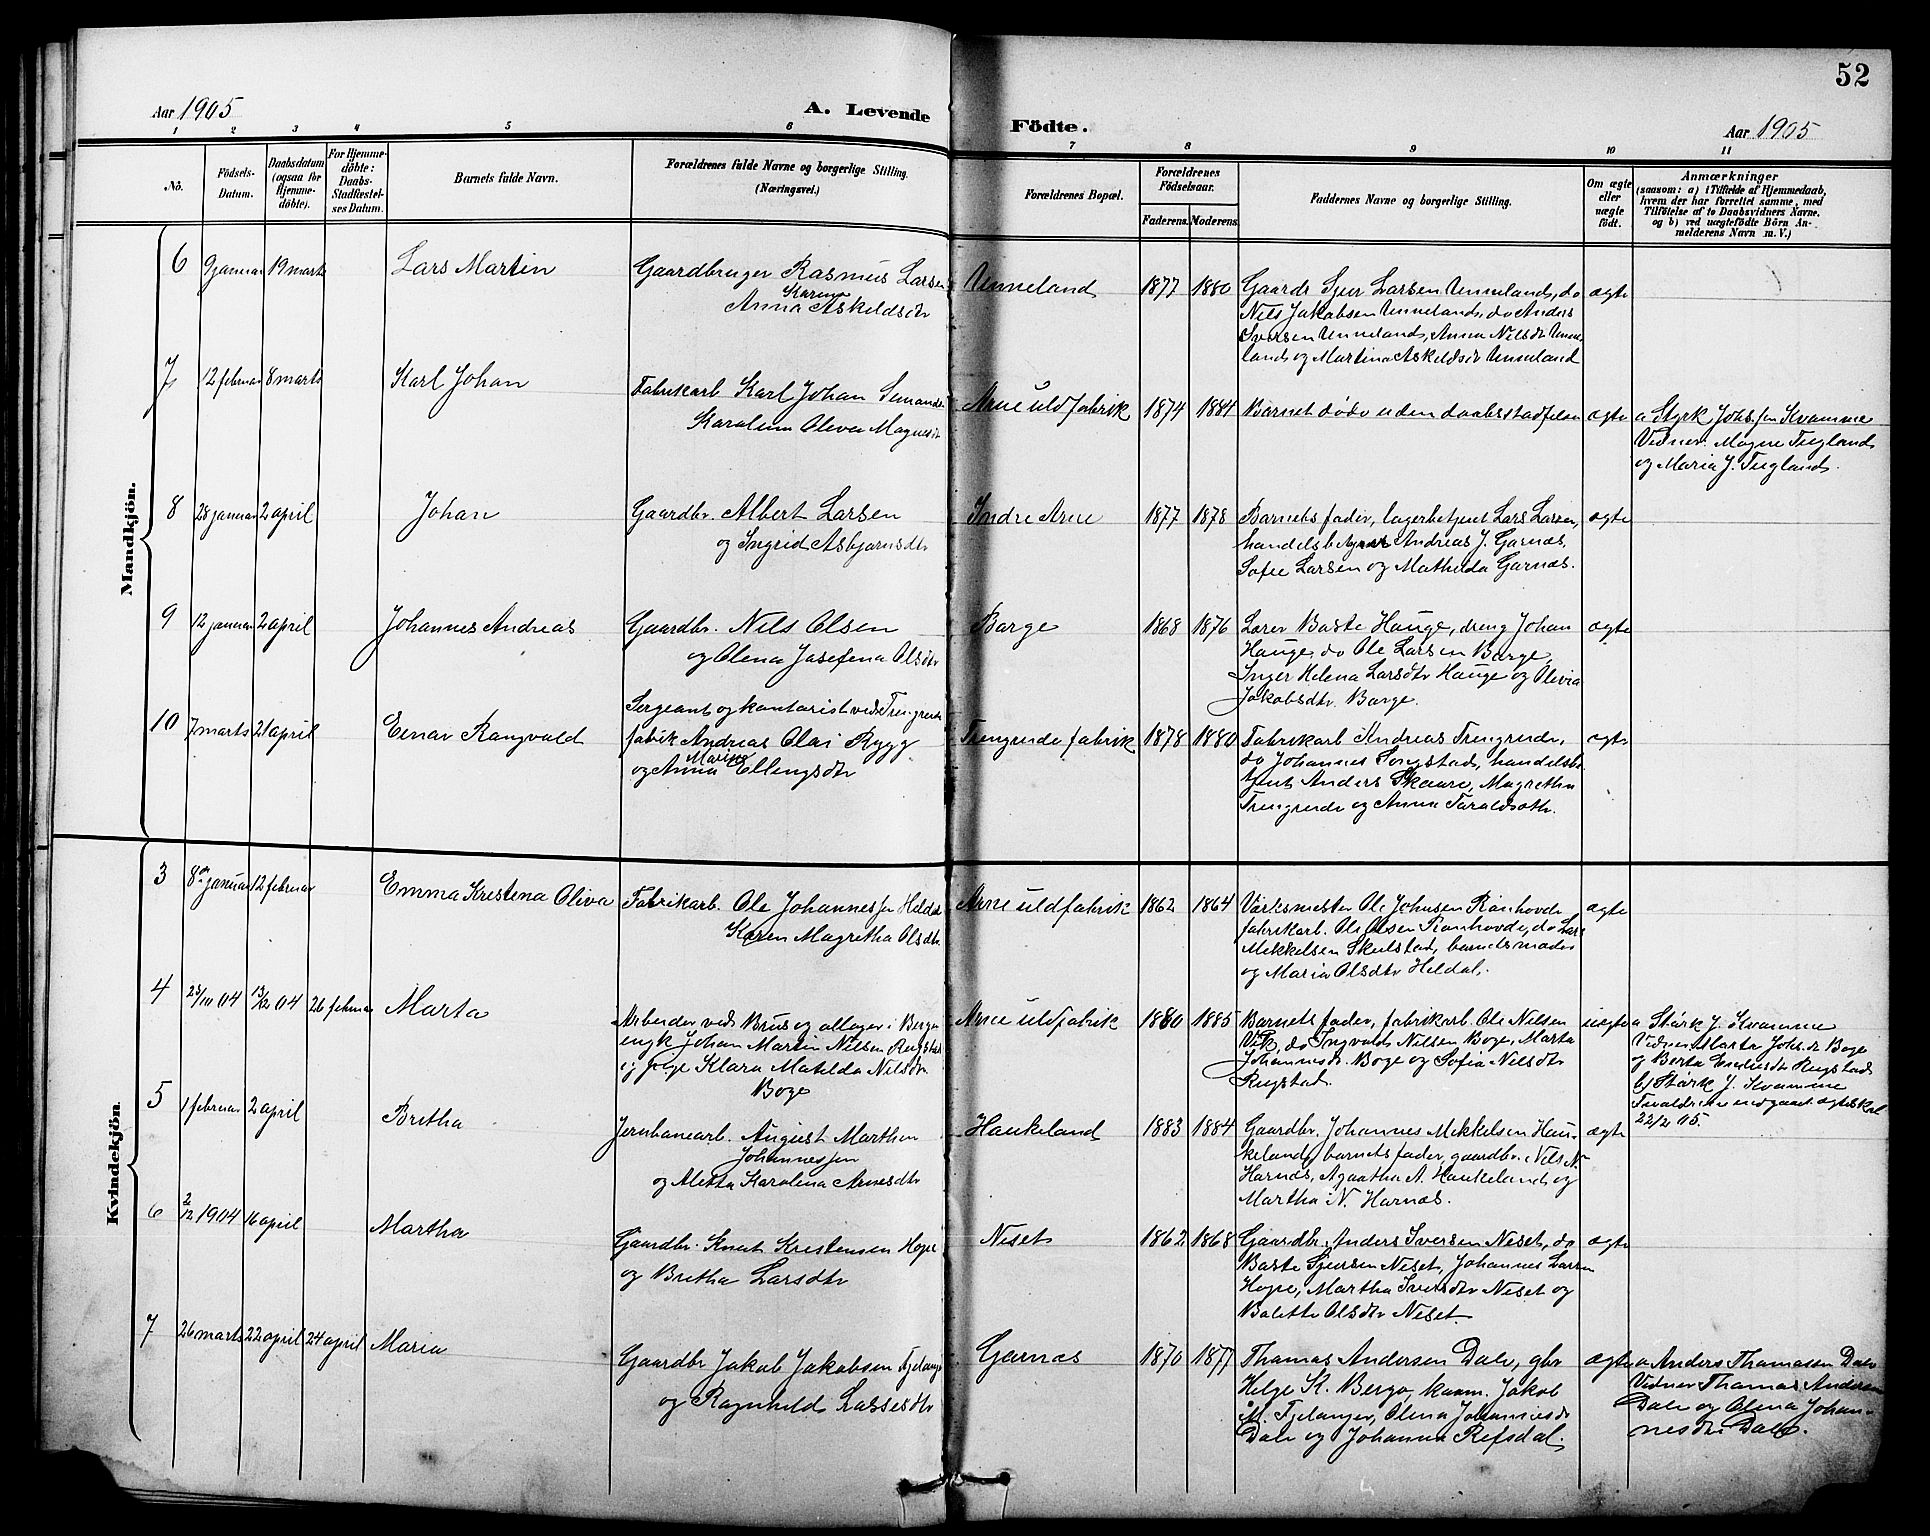 52
Aar 1905
A. Levende Födte.
Aar 1905
1 2 3 4 5 6 7 8 9 10 11
No.
Födsels-Datum.
Daabsdatum (ogsaa for Hjemmedöbte).
For Hjemmedöbte: Daabs-Stadfæstelses Datum.
Barnets fulde Navn.
Forældrenes fulde Navne og borgerlige Stilling.
(Næringsvei.)
Forældrenes Bopæl.
Forældrenes Födselsaar.
Faderens. Moderens.
Faddernes Navne og borgerlige Stilling.
Om ægte eller uægte födt.
Anmærkninger
(saasom: a) i Tilfælde af Hjemmedaab,
hvem der har forrettet samme, med
Tilföielse af to Daabsvidners Navne,
og b) ved uægtefödte Börn Anmelderens Navn m. V.)
Mandkjön.
6 9 januar 19 marts Lars Martin
Gaardbruger Rasmus Larsen
Karina
Anna Askeldsdtr
Unneland 1877 1880
Gaardr Sjur Larsen Unneland, do
Nils Jakobsen Unneland, do Anders
Iversen Unneland, Anna Nilsdtr Unne-
land og Martina Askeldsdtr Unneland
ægte
7 12 februar 8 marts Karl Johan
Fabrikarb Karl Johan
Karolina Oliva Magnesdtr
Arne uldfabrik 1874 1884
Barnet døde uden daabsstadfelse
ægte
a Styrk Johs.sen Kvamme
Vidner: Magne Tugland
og Maria J. Tugland.
8 28 januar 2 april Johan
Gaardbr. Albert Larsen
og Ingrid Asbjørnsdtr
Indre Arne 1877 1878
Barnets fader, lagerbetjent Lars Larsen,
handelsbetjent Andreas J. Garnæs,
Sofie Larsen og Mathilda Garnæs.
ægte
9 12 januar 2 april Johannes Andreas
Gaardbr. Nils Olsen
og Olena Josefena Olsdtr
Borge 1868 1876
Lærer Baste Hauge, dreng Johan
Hauge, do Ole Larsen Borge,
Inger Helena Larsdtr Hauge og Olivia
Jakobsdtr Borge.
ægte
10 7 marts 21 april Einar Rangvald
Sergeant og kontorist ved Trengereide
fabrik Andreas Olai Rygg
Marine
og Anna Ellengsdtr
Trengereide fabrik 1878 1880
Fabrikarb Andreas Trengreide,
do Johannes Songstad, handelsbe-
tjent Anders Skaare, Magretha
Trengreide og Anna Taraldsdtr.
ægte
Kvindekjön.
3 8de januar 12 februar Emma Kristena Oliva
Fabrikarb. Ole Johannessen Heldal
Karen Magretha Olsdtr
Arne uldfabrik 1862 1864
Værksmester Ole Johnsen Rønhovde
fabrikarb. Ole Olsen Rønhovde, do Lars
Mikkelsen Skulstad, barnets moder
og Maria Olsdtr Heldal.
ægte
4 23/10 04 13/12 04 26 februar Marta
Arbeider ved Brus og ollager i Bergen
engk Johan Martin Nilsen Rugstad
og pige Klara Matilda Nilsdtr
Boge
Arne uldfabrik 1880 1885
Barnets fader, fabrikarb. Ole Nilsen
Vik, do Ingvald Nilsen Boge, Marta
Johannesdr. Boge og Sofia Nilsdtr
Rugstad.
uægte
a Stärk J. Kvamme
Vidner Marta Johs.dr Boge
og Berta Rugstad
b) Stärk J. Kvamme
Forældrene indgaaet ægteskab
22/2 05.
5 1 februar 2 april Britha
Jernbanearb. August Marthin
Johannessen
og Aletta Karolina Arnesdtr
Haukeland 1883 1884
Gaardbr. Johannes Mikkelsen Hau-
keland, barnets fader, gaardbr. Nils N.
Harnæs, Agaatha A. Haukeland og
Martha N. Harnæs.
ægte
6 2/12 1904 16 april Martha
Gaardbr. Knut Kristensen Hope
og Britha Larsdtr
Neset 1862 1868
Gaardbr. Anders Iversen Neset, do
Baste Sjursen Neset, Johannes Larsen
Hope, Martha Iversdtr Neset og
Bolette Olsdtr Neset.
ægte
7 26 marts 22 april 24 april Maria
Gaardbr Jakob Jakobsen Fjelanger
og Ragnhild Lassesdtr
Garnæs 1870 1877
Thomas Andersen Dale, gbr
Helge K. Bergo, kaam. Jakob
M. Fjelanger, Olena Johannesdr
Dale og Johanna Refsdal.
ægte
a Anders Thomasen Dale
Vidner Thomas Andersen
Dale og Olena Johan-
nesdr Dale.